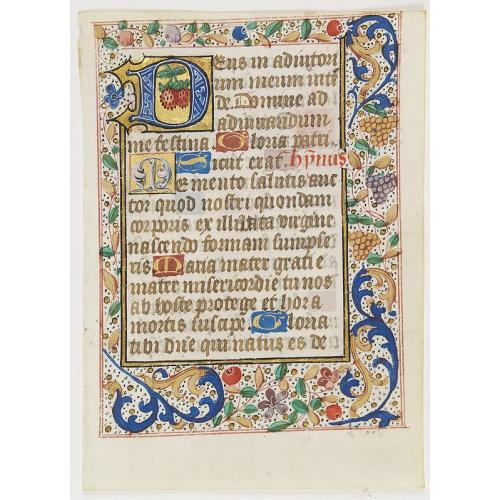 Deus in adiutori
um meum inte
de Domine ad
adiuuandum
me festina. Gloria patri.
Sicut erat. hymus
Memento salutis auc
tor quod nostri quondam
corporis ex illibata virgine
nascendo formam sumpse
ris Maria mater gratie
mater misericordie tu nos
ab hoste protege et hora
mortis suscipe Gloria
tibi dne qui natus es de